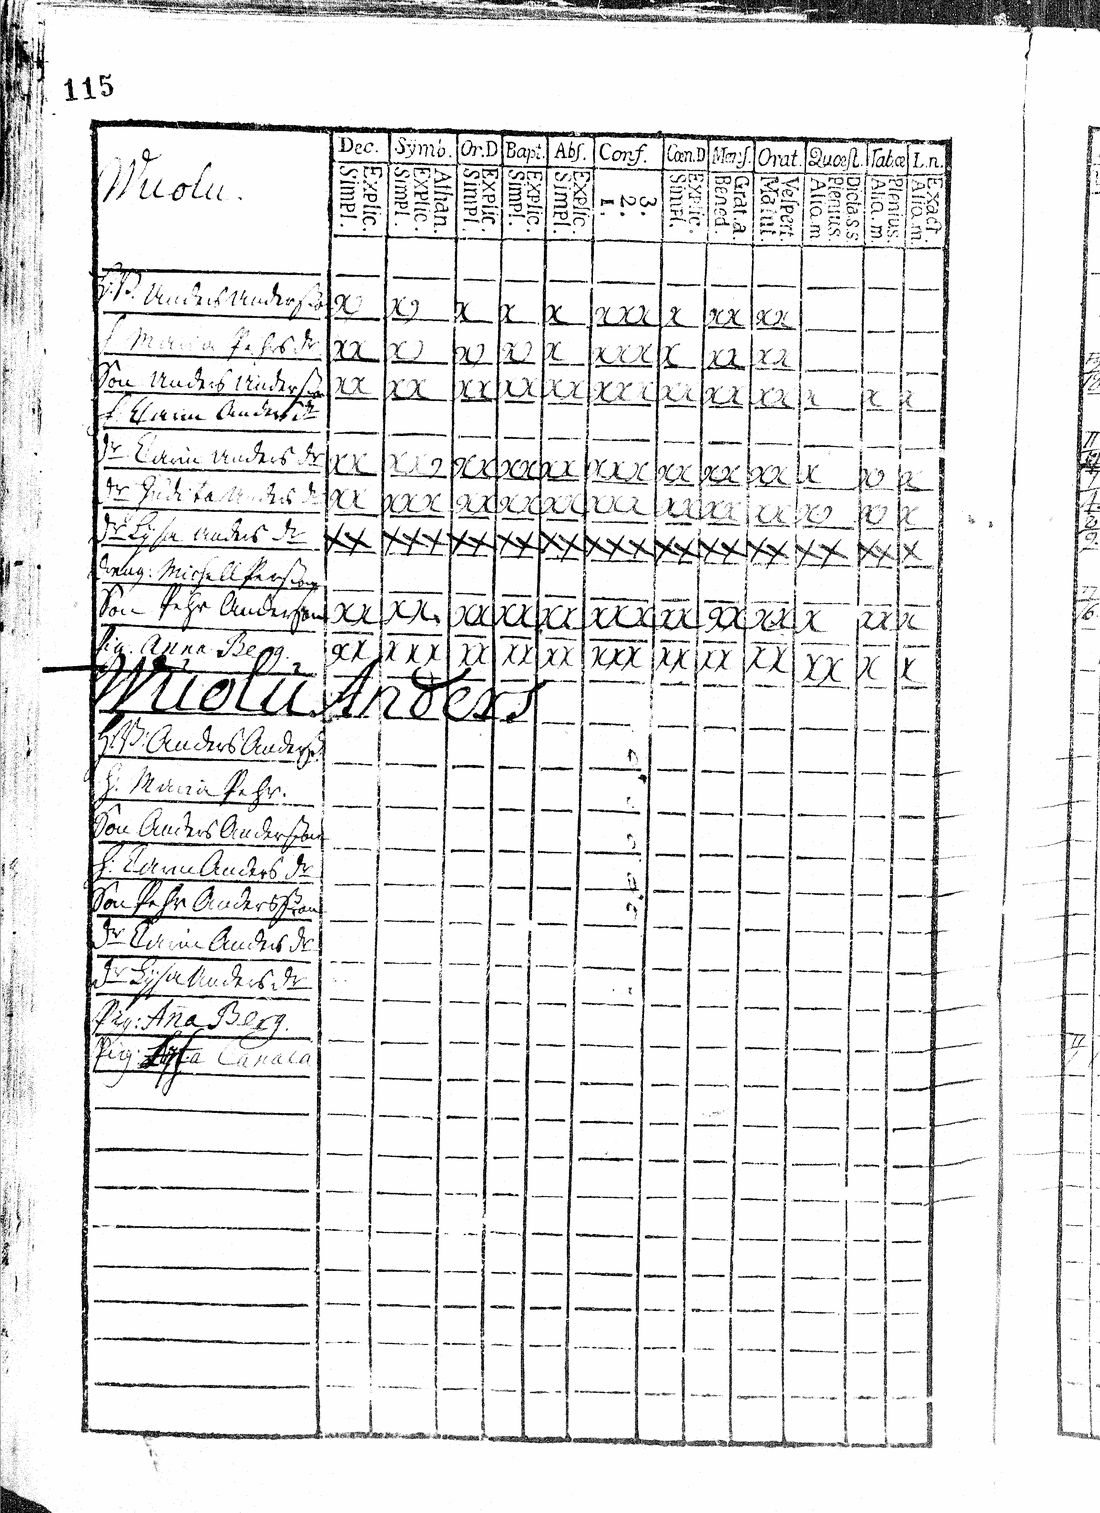 115
Dec. Symb. Or.D Bapt. Abs. Conf. Cœn.D Mens. Orat. Quæst. Tabæ L.n.
Wuolu.
Explic. Simpl. Athan. Explic. Simpl. Explic. Simpl. Explic. Simpl. Explic. Simpl. 3. 2. 1. Explic. Simpl. Grat.a. Bened Vespert. Matut. Dicta.s.s. Plenius. Aliq.m Plenius. Aliq.m. Exact. Aliq.m.
Anders Andersson x x x x x xxx x xx xx
Maria Pehrs dr xx x x x x xxx x xx xx
Son Anders Andersson xx xx xx xx xx xxx xx xx xx x x x
Carin Anders dr
dr Carin Anders dr xx xx xx xx xx xxx xx xx xx x x x
dr Anders dr xx xxx xx xx xx xxx xx xx xx x x x
dr Lysa Anders dr xx xxx xx xx xx xxx xx xx xx xx xx x
dreng: Michell Persson
Son Pehr Andersson xx xx xx xx xx xxx xx xx xx x xx x
Pig. Anna Berg. xx xxx xx xx xx xxx xx xx xx xx x x
Wuolu Anders
Anders Anders
h. Maria Pehr.
Son Anders Andersson
h: Carin Anders dr
Son Pehr Andersson
dr Carin Anders dr
dr Lysa Anders dr
Pig: Aña Berg.
Pig: